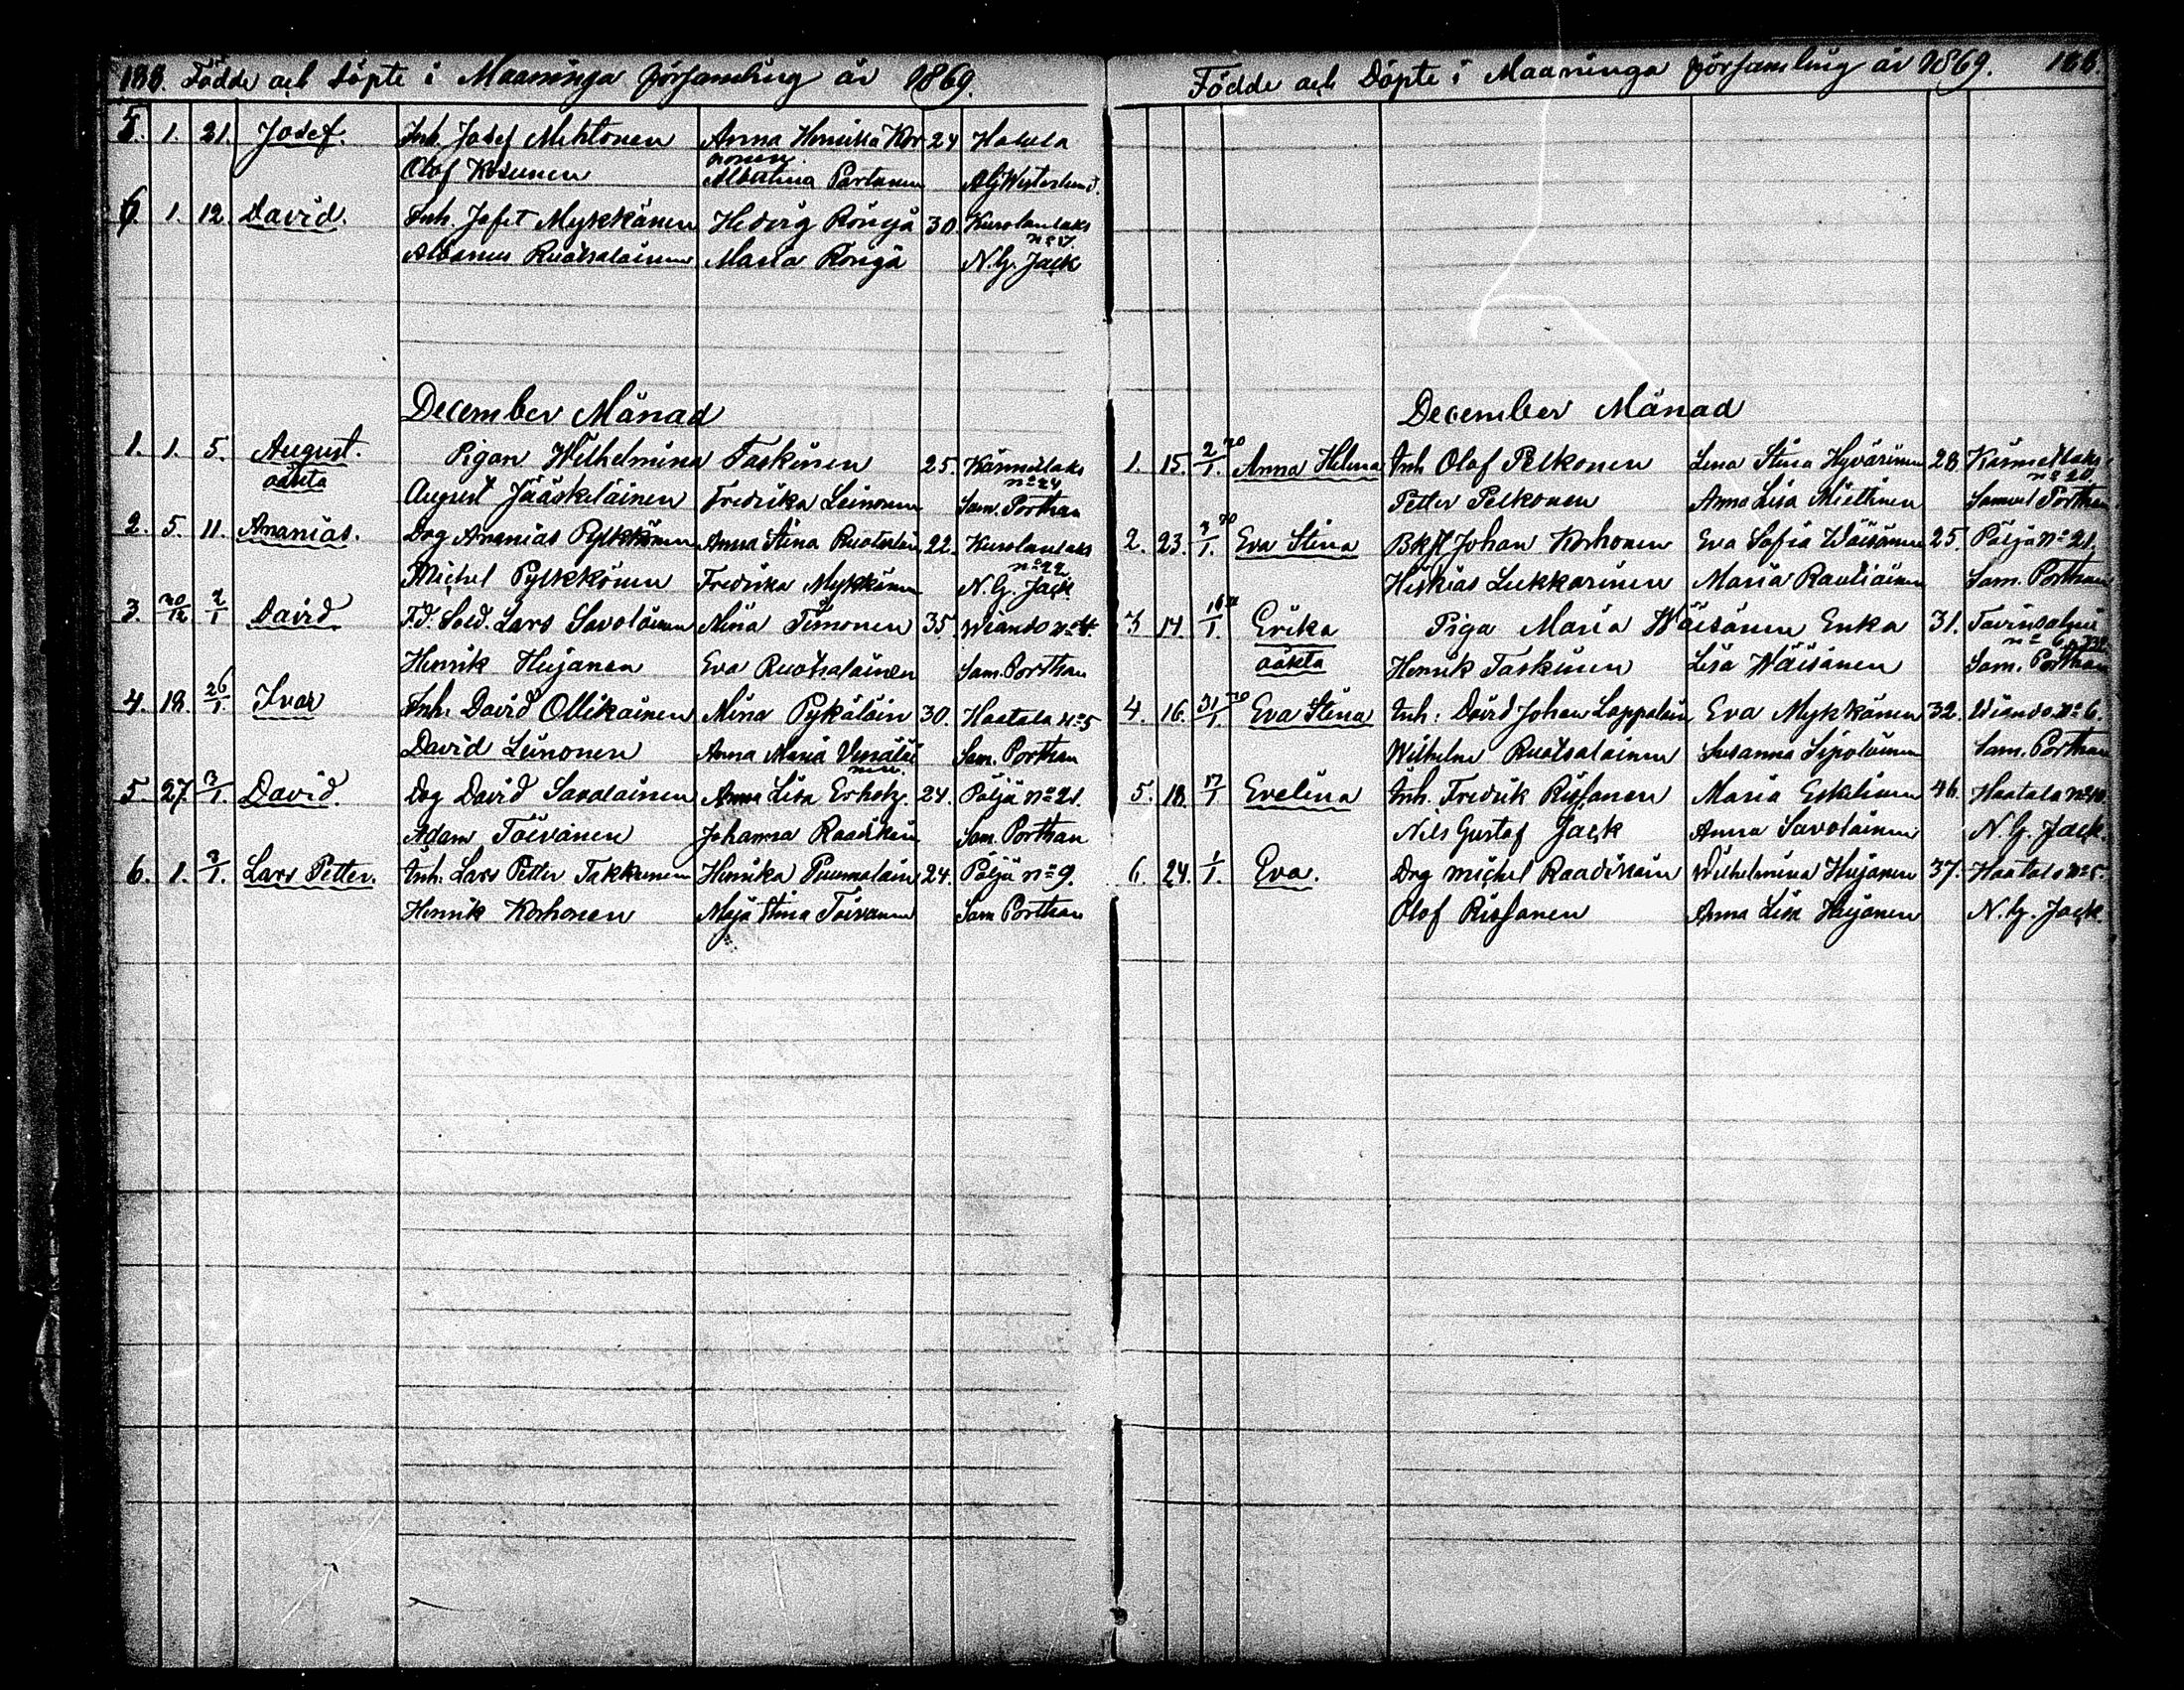 188. Födde och Döpte i Maaninga församling år 1869.
5. 1. 21. Josef. Inh. Josef Mehtonen Anna Henrika Kor 24 Halula
nonen.
Olof Kosunen Albertina Partanen Westerlund.
6 1. 12. David. Inh. Jofet Mykkänen Hedvig Rönijä 30. Kurolanlaks
Albanus Ruotsalainen Maria Ronijä N. G. Jack
December Månad
1. 1. 5. August. Pigan Wilhelmina Taskinen 25. Kärmelaks
oäkta n:o 24
August Jääskeläinen Fredrika Leinonen Sam. Porthan
2. 5. 11. Ananias. Drg Ananias Pylkkönen Anna Stina Ruotsalai 22. Kurolanlaks
n:o 22
Michel Pylkkönen Fredrika Mykkänen N. G. Jack
3. 20/12 2/1 David F.d. Sold. Lars Savolainen Mina Timonen 35. Wianto
Henrik Hujanen Eva Ruotsalainen Sam. Porthan
4. 18. 26/1. Ivar Inh. David Ollikainen Mina Pykäläin 30. Haatala n:o 5
David Leinonen Anna Maria Venäläi Sam. Porthan
nen.
5. 27. 13/1. David. Drg David Savolainen Anna Lisa Erhotz. 24. Pöljä n:o 21.
Adam Toivanen Johanna Raatikain Sam. Porthan
6. 1. 9/1. Lars Petter. Inh. Lars Petter Takkunen Henrika Puumalain 24. Pöljä n:o 9.
Henrik Korhonen Maja Stina Toivanen Sam Porthan
Födde och Döpte i Maaninga församling år 1869. 188.
December Månad
1. 15. 2/1. 70 Anna Helena Inh Olof Pelkonen Lena Stina Hyvärinen 28 Kärmelaks
n:o 20.
Petter Pelkonen Anna Lisa Miettinen Samuel Porthan
2. 23. 7/1. 70 Eva Stina Bksf Johan Korhonen Eva Sofia Wäisänen 25. Pöljä n:o 21.
Hiskias Lukkarinen Maria Rautiainen Sam. Porthan
3 14. 16/1. Erika Piga Maria Wäisänen Enka 31. Tavinsalmi
oäkta Henrik Taskinen Lisa Wäisänen Sam. Porthan
4. 16. 31/1. 70 Eva Stina Inh: David Johan Lappalain Eva Mykkänen 32. Wianto n:o 6.
Wilhelm Ruotsalainen Susanna Sipolainen Sam. Porthan
5. 18. 17/1 Evelina Inh. Fredrik Rissanen Maria Eskelinen 46. Haatala
Nils Gustaf Jack Anna Savolainen N. G. Jack.
6. 24. 1/1. Eva. Drg Michel Raatikain Wilhelmina Hujanen 37. Haatala n:o 5.
Olof Rissanen Anna Lisa Hujanen N. G. Jack.